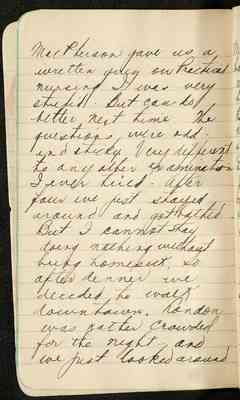 MacPherson gave us a
written quiz on Practical
nursing. I was very
stupid. But can do
better next time. The
questions were odd
and study very different
to any other examination
I ever tried. After
four we just stayed
around and got rested.
But I cannot stay
doing nothing without
being homesick. So
after dinner we
decided to walk
downtown. London
was rather crowded
for the night and
we just looked around